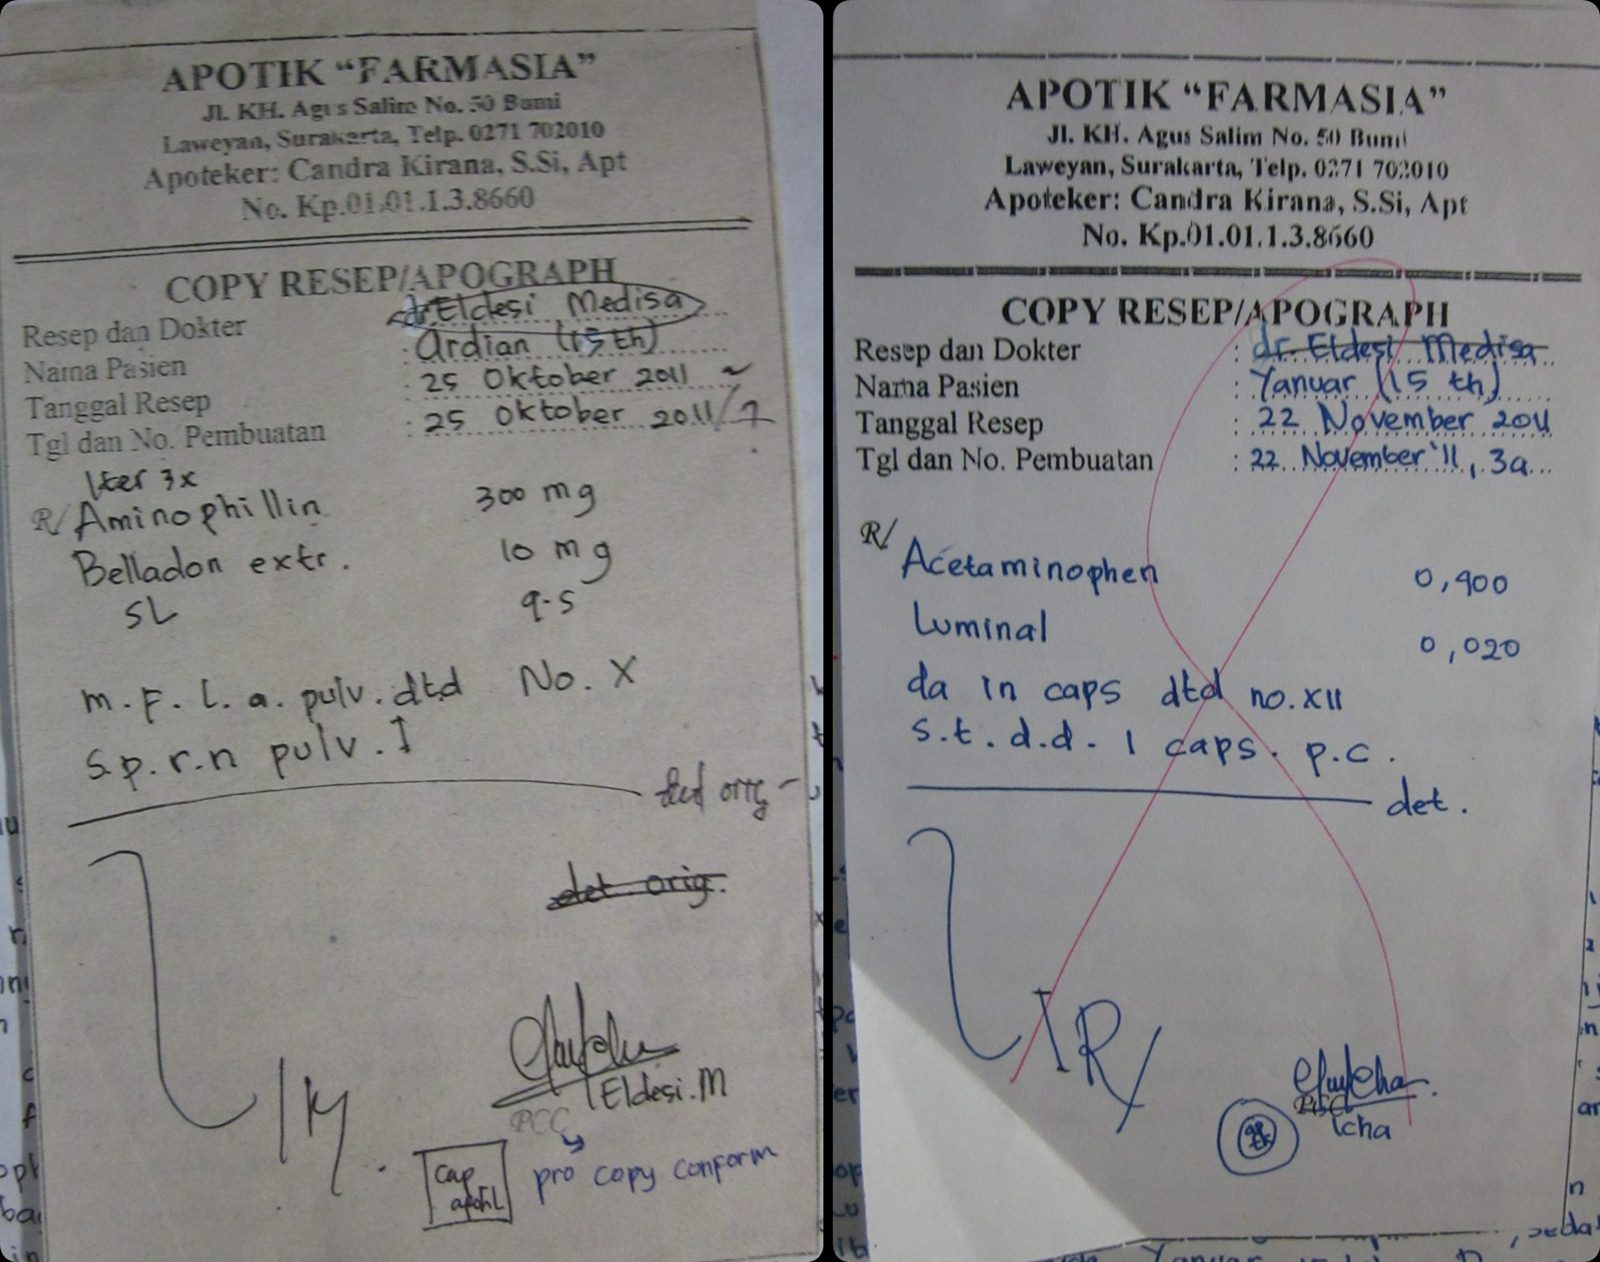 APOTIK “FARMASIA”
Jl. KH. Agus Salim No. 50 Bumi
Laweyan, Surakarta, Telp. 0271 702010
Apoteker: Candra Kirana, S.Si, Apt
No. Kp.01.01.1.3.8660
COPY RESEP/APOGRAPH
Resep dan Dokter : dr Eldesi Medisa
Nama Pasien : Ardian (15 th)
Tanggal Resep : 25 Oktober 2011
Tgl dan No. Pembuatan : 25 Oktober 2011/7
Iter 3x
R/ Aminophillin 300 mg
Belladon extr. 10 mg
SL q.s
m.f.l.a.pulv.dtd No. X
s.p.r.n pulv. I
det orig
det orig.
Eldesi.M
PCC
cap apotik
pro copy conform
APOTIK “FARMASIA”
Jl. KH. Agus Salim No. 50 Bumi
Laweyan, Surakarta, Telp. 0271 702010
Apoteker: Candra Kirana, S.Si, Apt
No. Kp.01.01.1.3.8660
COPY RESEP/APOGRAPH
Resep dan Dokter : dr. Eldesi Medisa
Nama Pasien : Yanuar (15 th)
Tanggal Resep : 22 November 2011
Tgl dan No. Pembuatan : 22 November '11, 3a
R/
Acetaminophen 0,400
Luminal 0,020
da in caps dtd no.XII
s.t.d.d. 1 caps. p.c.
det.
R/
Icha